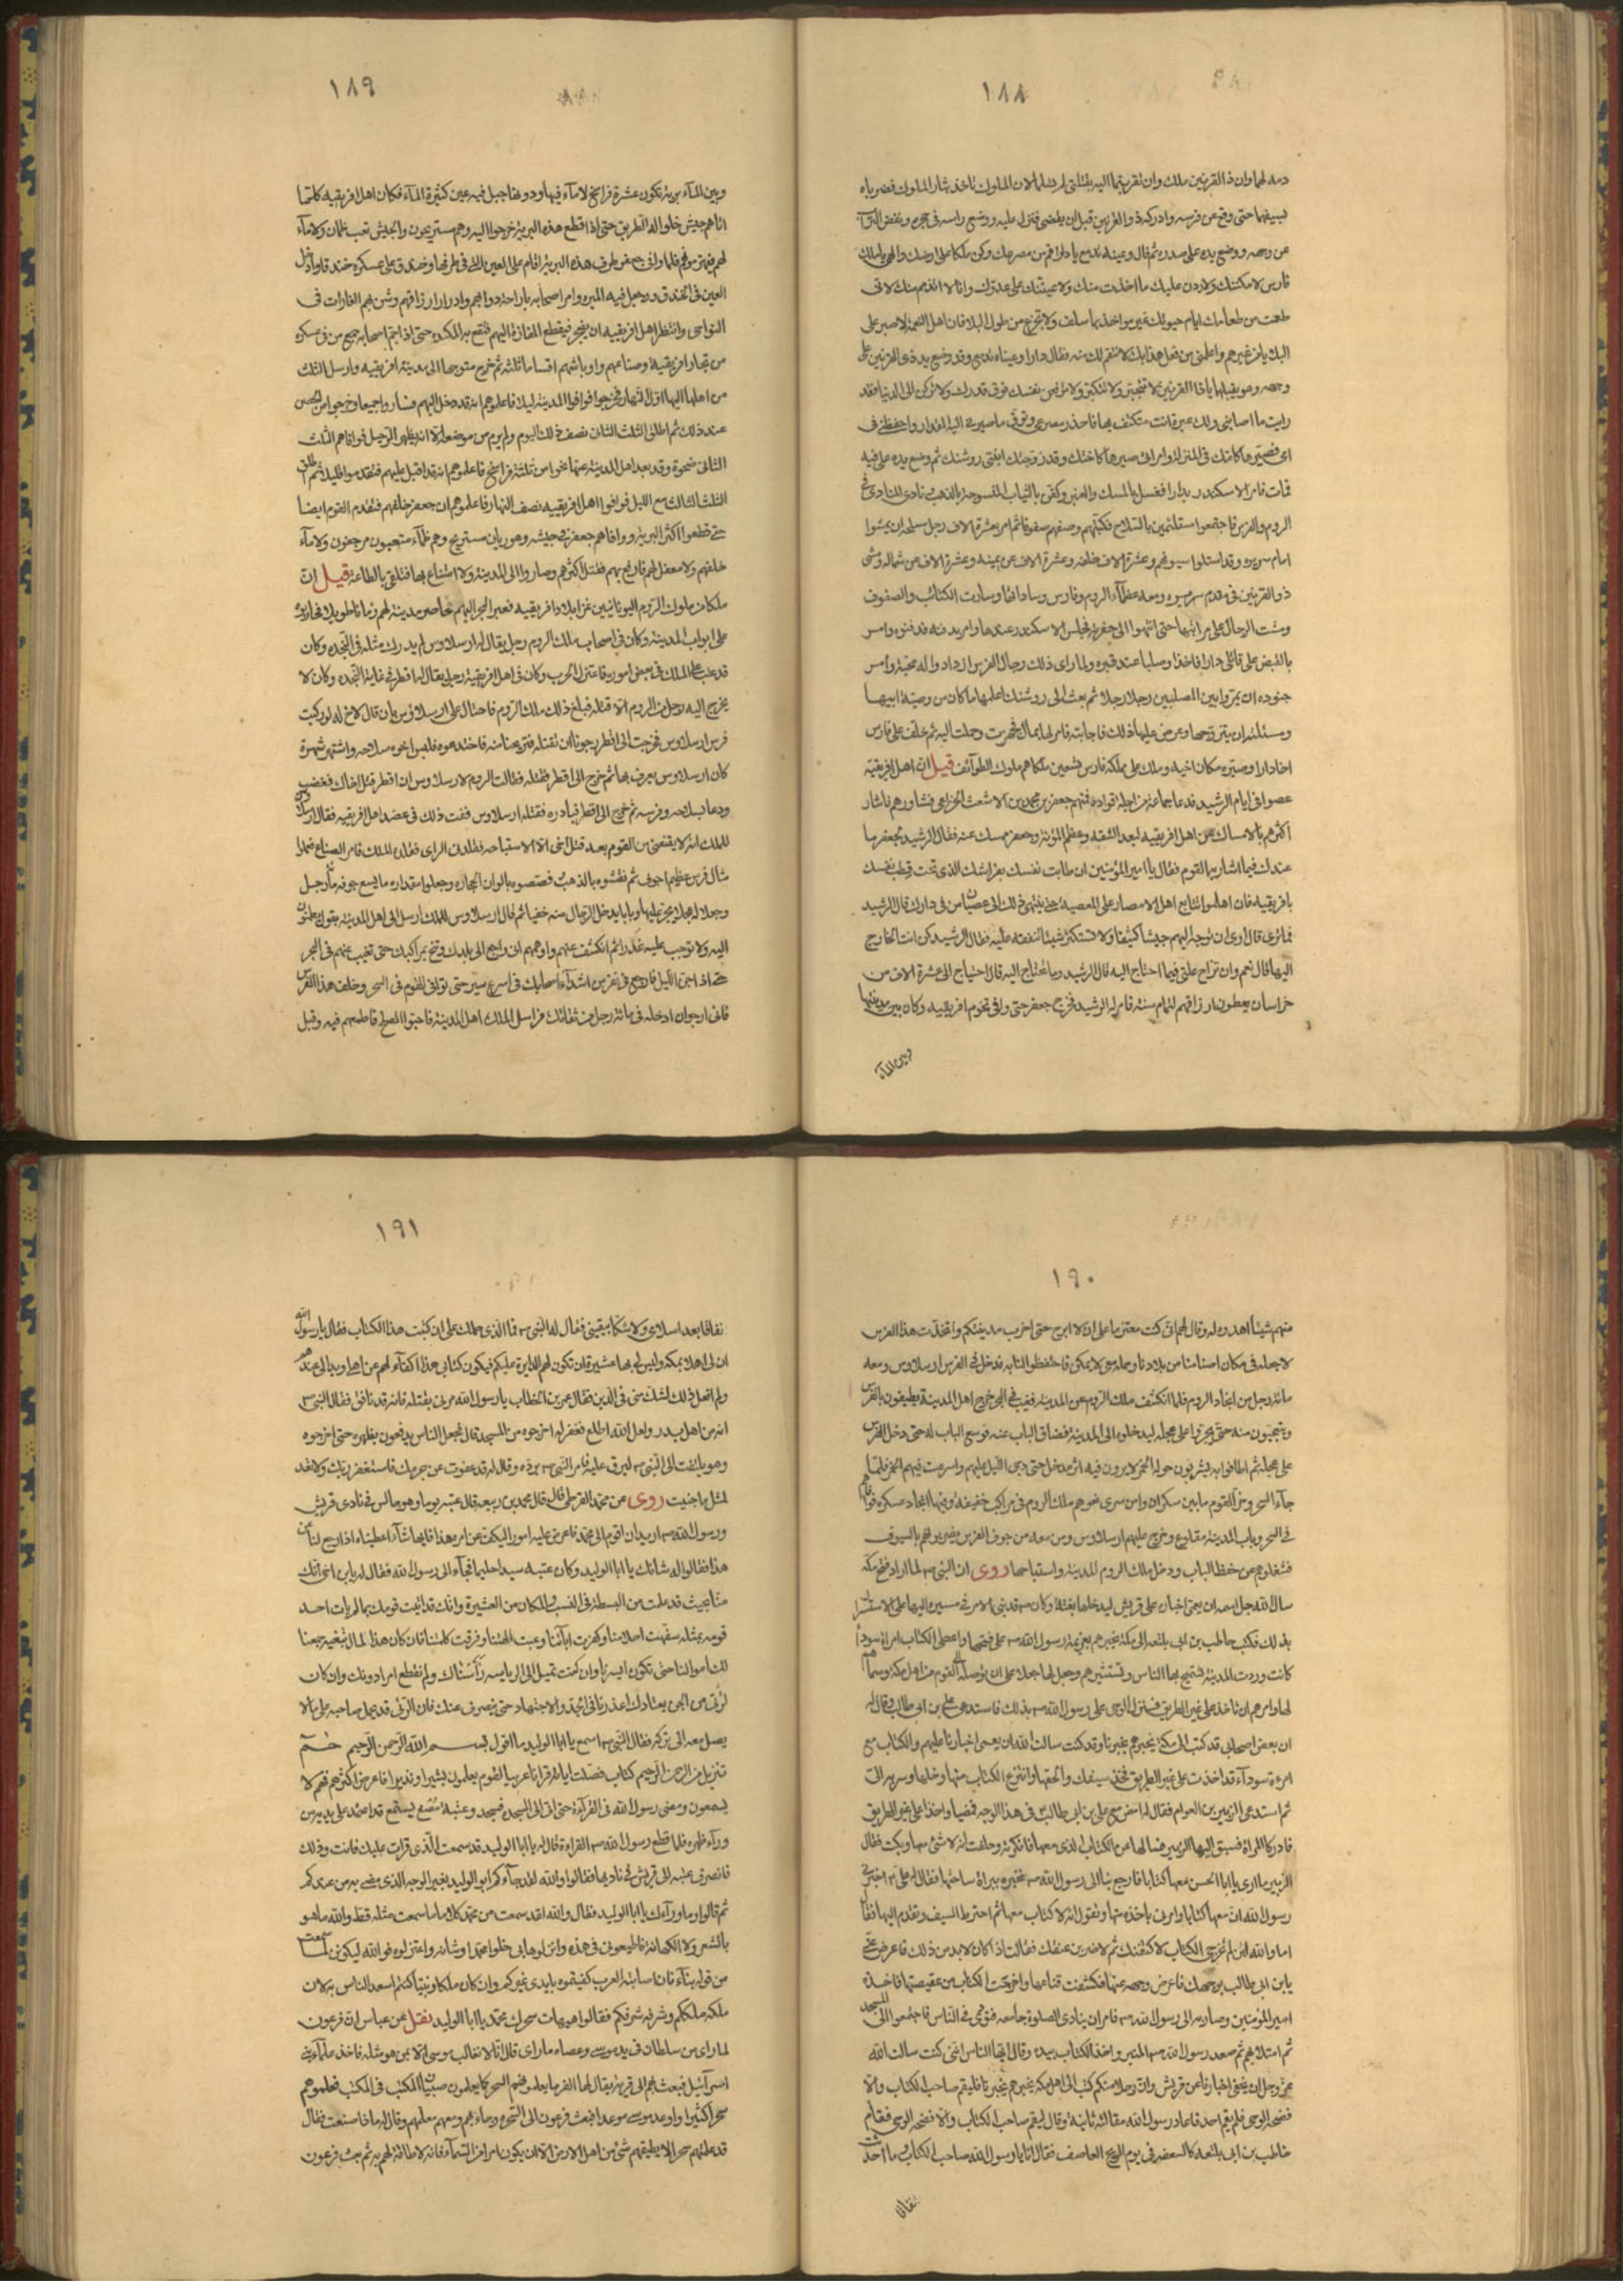 ١٨٨
دمه لهما وان ذا القرنين ملك وان تقربتما اليه بقتلتى لم يسلما لان الملوك تاخذ بثار الملوك فضرباه
بسيفهما حتى وقع عن فرسه وادركه ذو القرنين قبل ان يقضى فنزل عليه ووضع راسه فى حجره ونفض التراب
عن وجهه ووضع يده على صدره ثم قال وعينه تدمع يا دارا قم من مصرعك وكن ملكا على ارضك والهى يا ملك
فارس لامكننك ولاردن عليك ما اخذت منك ولاعيننك على عدوك وانا لا اتذمم منك لانى
طعمت من طعامك ايام حيوتك غير مواخذ بما سلف ولا تجزع من طول البلا فان اهل النعمة لاصبر على
البلايا من غيرهم واعلمنى من فعل هذا بك لانتقم لك منه فقال دارا وعيناه تدمع وقد وضع يد ذى القرنين على
وجهه وهو يقبلها يا ذا القرنين لا تتجبر ولا تتكبر ولا ترفعن نفسك فوق قدرك ولا تركن الى الدنيا فقد
رايت ما اصابنى ولك عبرة فاحذر مصرعى وتوق ما صيرنى اليه المقدار واحفظنى فى
امى فصيرها كامك فى المنزلة وامراتى صيرها كاختك وقد زوجتك ابنتى روشنك ثم وضع يده على فيه
فمات فامر الاسكندر بدارا فغسل بالمسك والعنبر وكفن بالثياب المنسوجة بالذهب ونادى المنادى فى
الروم والفرس فاجتمعوا مستلئمين بالسلاح فكتبهم وصفهم صفوفا ثم امر بعشرة الاف رجل مسلحة ان يمشوا
امام سريره وقد استلوا سيوفهم وعشرة الاف خلفه وعشرة الاف عن يمينه وعشرة الاف عن شماله ومشى
ذو القرنين فى مقدم سريره ومعه عظماء الروم وفارس وساداتها وسارت الكتائب والصفوف
ومشت الرجال على مراتبها حتى انتهوا الى حفرته فجلس الاسكندر عندها وامر بدفنه فدفنوه وامر
بالقبض على قاتلى دارا فاخذا وصلبا عند قبره ولما راى ذلك رجال الفرس ازدادوا له محبة وامر
جنوده ان يمروا بين المصلبين رجلا رجلا ثم بعث الى روشنك اعلمها ما كان من وصية ابيها
ومسئلته ان يتزوجها وعرض عليها ذلك فاجابته فامر لها بمال فجهزت وحملت اليه ثم خلف على فارس
اخا دارا وصيره مكان اخيه وملك على مملكة فارس تسعين ملكا هم ملوك الطوائف قيل ان اهل افريقية
عصوا فى ايام الرشيد فدعا جماعة من اجلة قواده فيهم جعفر بن محمد بن الاشعث الخزاعى فشاورهم فاشار
اكثرهم بالامساك عن اهل افريقيه لبعد الشقه وعظم المؤنة وجعفر ممسك عنه فقال الرشيد لجعفر ما
عندك فيما اشار به القوم فقال يا امير المؤمنين ان طابت نفسك بفراشك الذى تحت قطب نفسك
بافريقيه فان اهلوا تتابع اهل الامصار على المعصية حتى ينتهى ذلك الى عصيان من فى دارك قال الرشيد
فما ترى قال ارى ان توجه اليهم جيشا كثيفا ولا تستكثر شيئا تنفقه عليه فقال الرشيد كن انت الخارج
اليها قال نعم وان تزاح علتى فيما احتاج اليه قال الرشيد وما تحتاج اليه قال احتياج الى عشرة الاف من
خراسان يعطون ارزاقهم لتمام سنة فامر له الرشيد فخرج جعفر حتى وافى تخوم افريقيه وكان بين مدينتها
وبين الماء
١٨٩
وبين الماء برية تكون عشرة فراسخ لا ماء فيها ودونها جبل فيه عين كثيرة الماء فكان اهل افريقيه كلما
اتاهم جيش خلوا له الطريق حتى اذا قطع هذه البرية خرجوا اليه وهم مستريحون والجيش تعب ظمان ولا ماء
لهم فيهزمونهم فلما وافى جعفر طرف هذه البرية اقام على العين التى فى طرفها وخندق على عسكره خندقا وادخل
العين فى الخندق وجعل فيه المير وامر اصحابه باراحة دوابهم وادرار ارزاقهم وشن بهم الغارات فى
النواحى وانتظر اهل افريقيه ان يضجر فيقطع المفازة اليهم فتقع به المكيده حتى اذا اجم اصحابه جميع من فى عسكره
من تجار افريقية وصناعهم واوباشهم اقساما ثلثة ثم خرج متوجها الى مدينة افريقيه وارسل الثلث
من اهلها اليها اول النهار فخرجوا فوافوا المدينة ليلا فاعلموهم انه قد دخل اليهم فساروا جميعا وخرجوا من الحصن
عند ذلك ثم اطلق الثلث الثانى نصف ذلك اليوم ولم يرم من موضعه الا انه يظهر الرحيل فوافاهم الثلث
الثانى ضحوة وقد بعد اهل المدينة عنها نحوا من ثلثة فراسخ فاعلموهم انه قد اقبل عليهم فتقدموا قليلا ثم اطلق
الثلث الثالث مع الليل فوافوا اهل افريقيه نصف النهار فاعلموهم ان جعفر خلفهم فتقدم القوم ايضا
حتى قطعوا اكثر البرية ووافاهم جعفر فى جيشه وهو ريان مستريح وهم ظماء متعبون مرجفون ولا ماء
خلفهم ولا معقل لهم فاوقع بهم فقتل اكثرهم وصاروا الى المدينة ولا امتناع بها فتلقى بالطاعة قيل ان
ملكا من ملوك الروم اليونانيين غزا بلاد افريقيه فعبر البحر اليهم فحاصر مدينة لهم زمانا طويلا فحاربوه
على ابواب المدينة وكان فى اصحاب ملك الروم رجل يقال له ارسلاوس لم يدرك مثله فى النجده وكان
قد عتب على الملك فى بعض اموره فاعتزل الحرب وكان فى اهل افريقية رجل يقال له اقطر فى غاية النجده وكان لا
يخرج اليه رجل من الروم الا قتله فبلغ ذلك ملك الروم فاحتال على ارسلاوس بان قال لاخ له لو ركبت
فرس ارسلاوس فخرجت الى اقطر رجونا ان تقتله فخدعوه فلبس اخوه سلاحه واشتهر شهرة
كان ارسلاوس يعرف بها ثم خرج الى اقطر فقتله فقالت الروم لارسلاوس ان اقطر قتل اخاك فغضب
ودعا بسلاحه وفرسه ثم خرج الى اقطر فبادره فقتله ارسلاوس ففت ذلك فى عضد اهل افريقيه فقال ارسلاوس
للملك انه لا يقنعنى من القوم بعد قتل اخى الا الاستباحه فقلدن الراى فقلده الملك فامر الصناع فعملوا
مثال فرس عظيم اجوف ثم نقشوه بالذهب فصصوه بالوان الحجاره وجعلوا مقداره ما يسع جوفه مائة رجل
وجعلا له عجلا يجر عليها وبابا يدخل الرجال منه خفيا ثم قال ارسلاوس للملك ارسل الى اهل المدينة بقول يطمئنون
اليه ولا توجب عليه غدرا ثم انكشف عنهم واوهمهم انك راجع الى بلدك وتنح بمراكبك حتى تغيب عنهم فى البحر
حتى اذا جن الليل فارجع فى نفر من اشداء اصحابك فى اسرع سير حتى توافى القوم فى السحر وخلف هذا الفرس
فانى ارجو ان ادخله فى مائة رجل من ثقاتك فراسل الملك اهل المدينة فاحبوا الصلح فاطمعهم فيه وقبل
١٩٠
منهم شيئا اهدوه له وقال لهم انى كنت معتزما على ان لا ابرح حتى اخرب مدينتكم واتخذت هذا الفرس
لاجعله فى مكان اصنامنا من بلادنا وحمله معى لا يمكن فاحتفظوا لنا به فدخل فى الفرس ارسلاوس ومعه
مائة رجل من انجاد الروم فلما انكشف ملك الروم عن المدينة فغيب فى البحر خرج اهل المدينة يطيفون بالفرس
ويتعجبون منه حتى يجروا على عجله ليدخلوه الى المدينة فضاق الباب عنه فوسع الباب له حتى دخل الفرس
على عجله ثم اطافوا به يشربون حوله الخمر لا يرون فيه اثر مدخل حتى دجى الليل عليهم واسرعت فيهم الخمر فلما
جاء السحر وترا القوم ما بين سكران وامن سرى نحوهم ملك الروم فى مراكب خفيفة وفيها انجاد عسكره فوافاهم
فى السحر وباب المدينة مقلوع وخرج عليهم ارسلاوس ومن معه من جوف الفرس يضربونهم بالسيوف
فشغلوهم عن حفظ الباب ودخل ملك الروم المدينة واستباحها روى ان النبى ص لما اراد فتح مكه
سال الله جل اسمه ان يعمى اخباره على قريش ليدخلها بغتة وكان ص قد بنى الامر فى مسيره اليها على الاستسرار
بذلك فكتب حاطب بن ابى بلتعه الى مكة يخبرهم بعزيمة رسول الله ص على فتحها واعطى الكتاب امراة سوداء
كانت وردت المدينة تستميح بها الناس وتستبرهم وجعل لها جعلا على ان يوصله الى القوم من اهل مكة وسماهم
لها وامرهم ان تاخذ على غير الطريق فنزل الوحى على رسول الله ص بذلك فاستدعى على بن ابى طالب وقال له
ان بعض اصحابى قد كتب الى مكة يخبرهم بخبرنا وقد كنت سالت الله ان يعمى اخبارنا عليهم والكتاب مع
امرءة سوداء قد اخذت على غير الطريق فخذ سيفك والحقها وانتزع الكتاب منها وخلها وسر به الى
ثم استدعى الزبير بن العوام فقال له امض مع على بن ابى طالب فى هذا الوجه فمضيا واخذا على غير الطريق
فادركا المراة فسبق اليها الزبير فسالها عن الكتاب الذى معها فانكرته وحلفت انه لا شئ معها وبكت فقال
الزبير ما ارى يا ابا الحسن معها كتابا فارجع بنا الى رسول الله ص نخبره ببراة ساحتها فقال له على ع اخبرنى
رسول الله ان معها كتابا وامرنى باخذه منها وتقول انه لا كتاب معها ثم اخترط السيف وتقدم اليها فقال
اما والله لئن لم تخرجى الكتاب لاكشفنك ثم لاضربن عنقك فقالت اذا كان لا بد من ذلك فاعرض عنى
يا بن ابى طالب بوجهك فاعرض وجهه عنها فكشفت قناعها واخرجت الكتاب من عقيصتها فاخذه
امير المؤمنين وصار به الى رسول الله ص فامر ان ينادى الصلوة جامعه فنودى فى الناس فاجتمعوا الى المسجد
ثم امتلا بهم ثم صعد رسول الله ص المنبر واخذ الكتاب بيده وقال ايها الناس انى كنت سالت الله
عز وجل ان يخفى اخبارنا عن قريش وان رجلا منكم كتب الى اهل مكه يخبرهم بخبرنا فليقم صاحب الكتاب والا
فضحه الوحى فلم يقم احد فاعاد رسول الله مقالته ثانية وقال ليقم صاحب الكتاب والا فضحه الوحى فقام
حاطب بن ابى بلتعه كالسعفه فى يوم الريح العاصف فقال انا يا رسول الله صاحب الكتاب وما احدثت
نفاقا
١٩١
نفاقا بعد اسلامى ولا شكا بيقينى فقال له النبى ص فما الذى حملك على ان كتبت هذا الكتاب فقال يا رسول الله
ان لى اهلا بمكه وليس لى بها عشيرة فان تكون لهم الدايرة عليكم فيكون كتابى هذا اكفاء لهم عن اهلى ويدا لى عندهم
ولم افعل ذلك لشك منى فى الدين فقال عمر بن الخطاب يا رسول الله مرنى بقتله فانه قد نافق فقال النبى ص
انه من اهل بدر ولعل الله اطلع فغفر له اخرجوه من المسجد قال فجعل الناس يدفعون بظهره حتى اخرجوه
وهو يلتفت الى النبى ص ليرق عليه فامر النبى ص برده وقال له قد عفوت عن جرمك فاستغفر ربك ولا تعد
لمثل ما جنيت روى عن محمد القرظى قال قال محمد بن ربيعه قال عتبه يوما وهو جالس فى نادى قريش
ورسول الله ص اريد ان اقوم الى محمد فاعرض عليه امورا ليكف عن امره هذا فايها شاء اعطيناه اذا رجع لنا عن
هذا فقالوا له شانك يا ابا الوليد وكان عتبه سيدا حليما فجاء الى رسول الله فقال له يا بن اخى انك
منا بحيث قد علمت من البسطة فى النسب والمكان من العشيرة وانك قد اتيت قومك بما لم يات احد
قومه بمثله سفهت احلامنا وكفرت اباءنا وعبت الهتنا وفرقت كلمتنا فان كان هذا لمال تبغيه جمعنا
لك اموالنا حتى تكون ايسرنا وان كنت تميل الى الرياسه راسناك ولم نقطع امرا دونك وان كان
لرئى من الجن يعتادك اعذرنا فى الجد والاجتهاد حتى ينصرف عنك فان الرئى قد يحمل صاحبه على ما لا
يصل معه الى تركه فقال النبى ص اسمع يا ابا الوليد ما اقول بسم الله الرحمن الرحيم حم
تنزيل من الرحمن الرحيم كتاب فصلت اياته قرانا عربيا لقوم يعلمون بشيرا ونذيرا فاعرض اكثرهم فهم لا
يسمعون ومضى رسول الله فى القراءة حتى اتى الى السجد فسجد وعتبة مصغ يستمع قد اعتمد على يديه من
وراء ظهره فلما قطع رسول الله ص القراءة قال له يا ابا الوليد قد سمعت الذى قرات عليك فانت وذلك
فانصرف عتبه الى قريش فى ناديها فقالوا والله لقد جاءكم ابو الوليد بغير الوجه الذى مضى به من عندكم
ثم قالوا وما وراءك يا ابا الوليد فقال والله لقد سمعت من محمد كلاما ما سمعت مثله قط والله ما هو
بالشعر ولا الكهانة فاطيعونى فى هذه وانزلوها بى خلوا محمدا وشانه واعتزلوه فوالله ليكونن لما سمعت
من قوله نباء فان اصابته العرب كفيتموه بايدى غيركم وان كان ملكا او نبيا كنتم اسعد الناس به لان
ملكه ملككم وشرفه شرفكم فقالوا هيهات سحرك محمد يا ابا الوليد نقل عن عباس ان فرعون
لما راى من سلطان فى يد موسى وعصاه ما راى قال انا لا نغالب موسى الا بمن هو مثله فاخذ علماء بنى
اسرائيل فبعث بهم الى قرية يقال لها الفرما يعلمونهم السحر كما يعلمون صبيان المكتب فى المكتب فعلموهم
سحرا كثيرا وواعد موسى موعدا فبعث فرعون الى السحرة وجاء بهم ومعهم معلمهم وقال له ماذا صنعت فقال
قد علمتهم سحرا لا يطيقهم شئ من اهل الارض الا ان يكون امر من السماء فانه لا طاقة لهم به ثم بعث فرعون